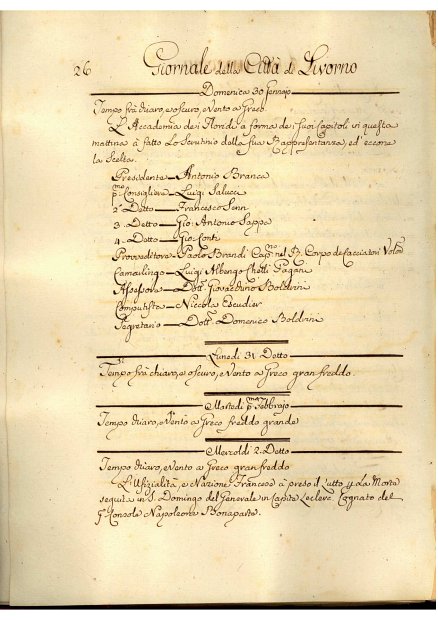 26 Giornale della Città di Livorno
Domenica 30 Gennajo
Tempo frà chiaro, e oscuro, e Vento a Greco.
L'Accademia dei Floridi a forma dei suoi Capitoli in questa
mattina à fatto lo Scrutinio della sua Rappresentanza, ed eccone
la Scelta.
Presidente — Antonio Branca
pmo Consigliere — Luigi Salucci
2º Detto — Francesco Senn
3. Detto — Gio: Antonio Pappe
4. Detto — Gio: Conti
Provveditore — Paolo Brandi Capno nel R. Corpo de Cacciatori Volri
Camarlingo — Luigi Albengo Chelli Pagani
Assessore — Dott. Giovacchino Boldrini
Computista — Niccola Escudier
Segretario — Dott. Domenico Boldrini
Lunedi 31 Detto
Tempo frà chiaro, e oscuro, e Vento a Greco gran freddo.
Martedi pmo Febbrajo
Tempo chiaro, e Vento a Greco freddo grande
Mercoldi 2. Detto
Tempo chiaro, e Vento a Greco gran freddo
L'Ufizialità, e Nazione Francese à preso il Lutto p. La Morte
seguita in S. Domingo del Generale in Capite Leclerc. Cognato del
po Console Napoleone Bonaparte.